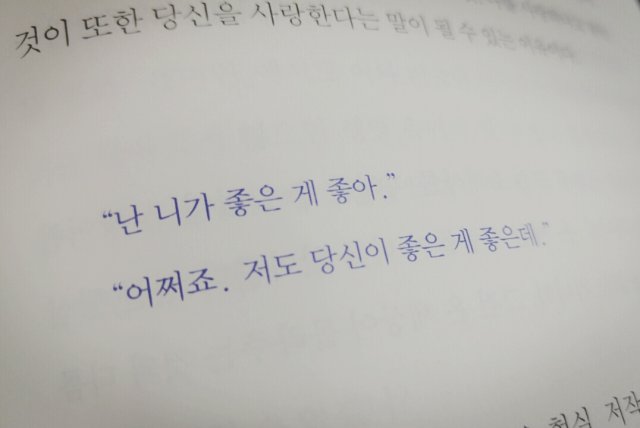 것이 또한 당신을 사랑한다는 말이 될 수 있는
“난 니가 좋은 게 좋아.”
“어쩌죠. 저도 당신이 좋은 게 좋은데.”